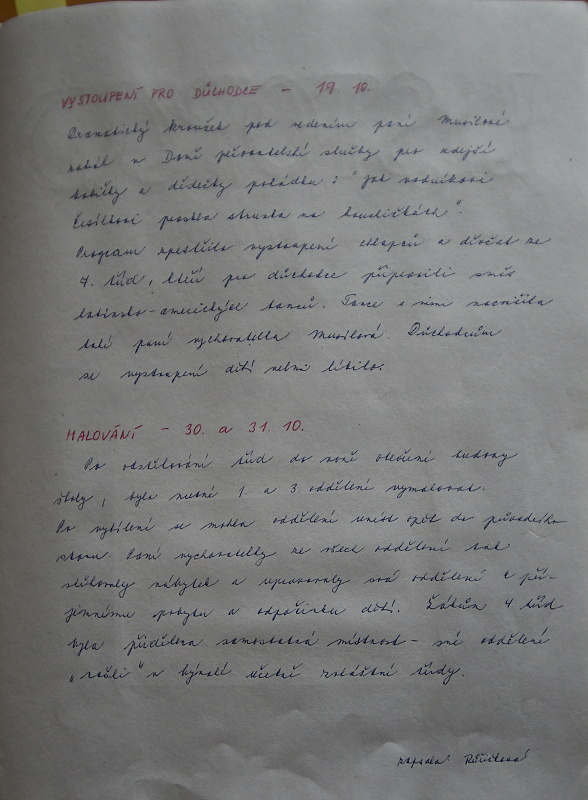 VYSTOUPENÍ PRO DŮCHODCE - 19 10.
Dramatický kroužek pod vedením paní Musilové
v Domě pečovatelské služby pro zdejší
babičky a dědečky pohádku: "Jak vodníkovi
Česílkovi praskla strunka na housličkách".
Program zpestřilo vystoupení chlapců a děvčat ze
4. tříd, kteří pro důchodce připravili směs
latinsko-amerických tanců. Tance s nimi nacvičila
také paní vychovatelka Musilová. Důchodcům
se vystoupení dětí velmi líbilo.
MALOVÁNÍ - 30. a 31. 10.
Po odstěhování tříd do nově otevřené budovy
školy, bylo nutné 1. a 3 oddělení vymalovat.
Po vybílení se mohla oddělení uvést opět do původního
stavu. Paní vychovatelky ze všech oddělení tak
stěhovaly nábytek a upravovaly svá oddělení k pří-
jemnému pobytu a odpočinku dětí. Žákům 4 tříd
byla přidělena samostatná místnost - své oddělení
v bývalé učebně zvláštní třídy.
zapsala Růžičková